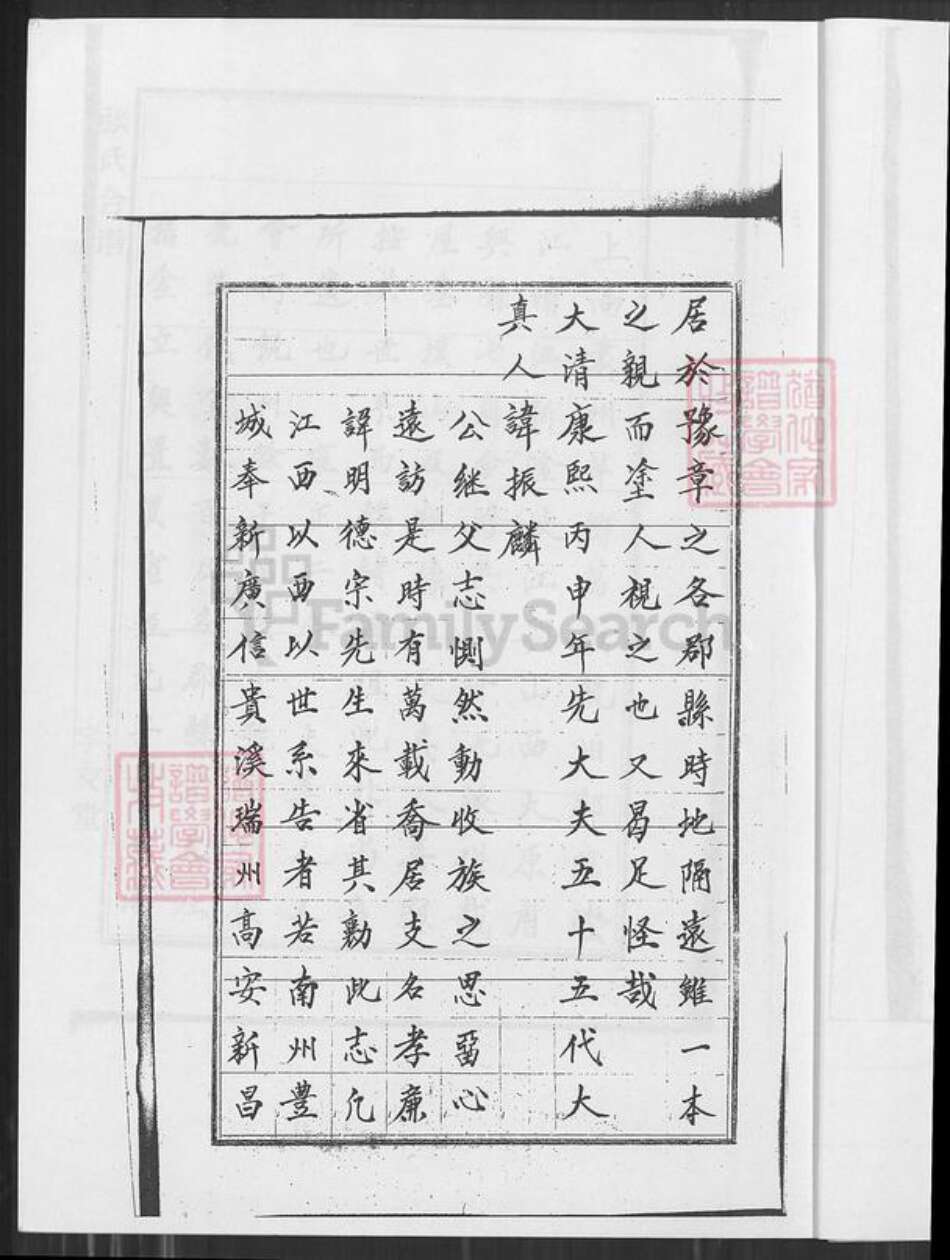 居於豫章之各郡縣時地隔遠雖一本
之親而塗人視之也又曷足怪哉
大清康熙丙申年先大夫五十五代大
真人諱振麟
公继父志惻然動收族之思畱心
遠訪是時有萬載喬居支名孝廉
諱明德宗先生來省其勷此志凡
江西以西以世系告者若南州豐
城奉新廣信貴溪瑞州高安新昌
FamilySearch